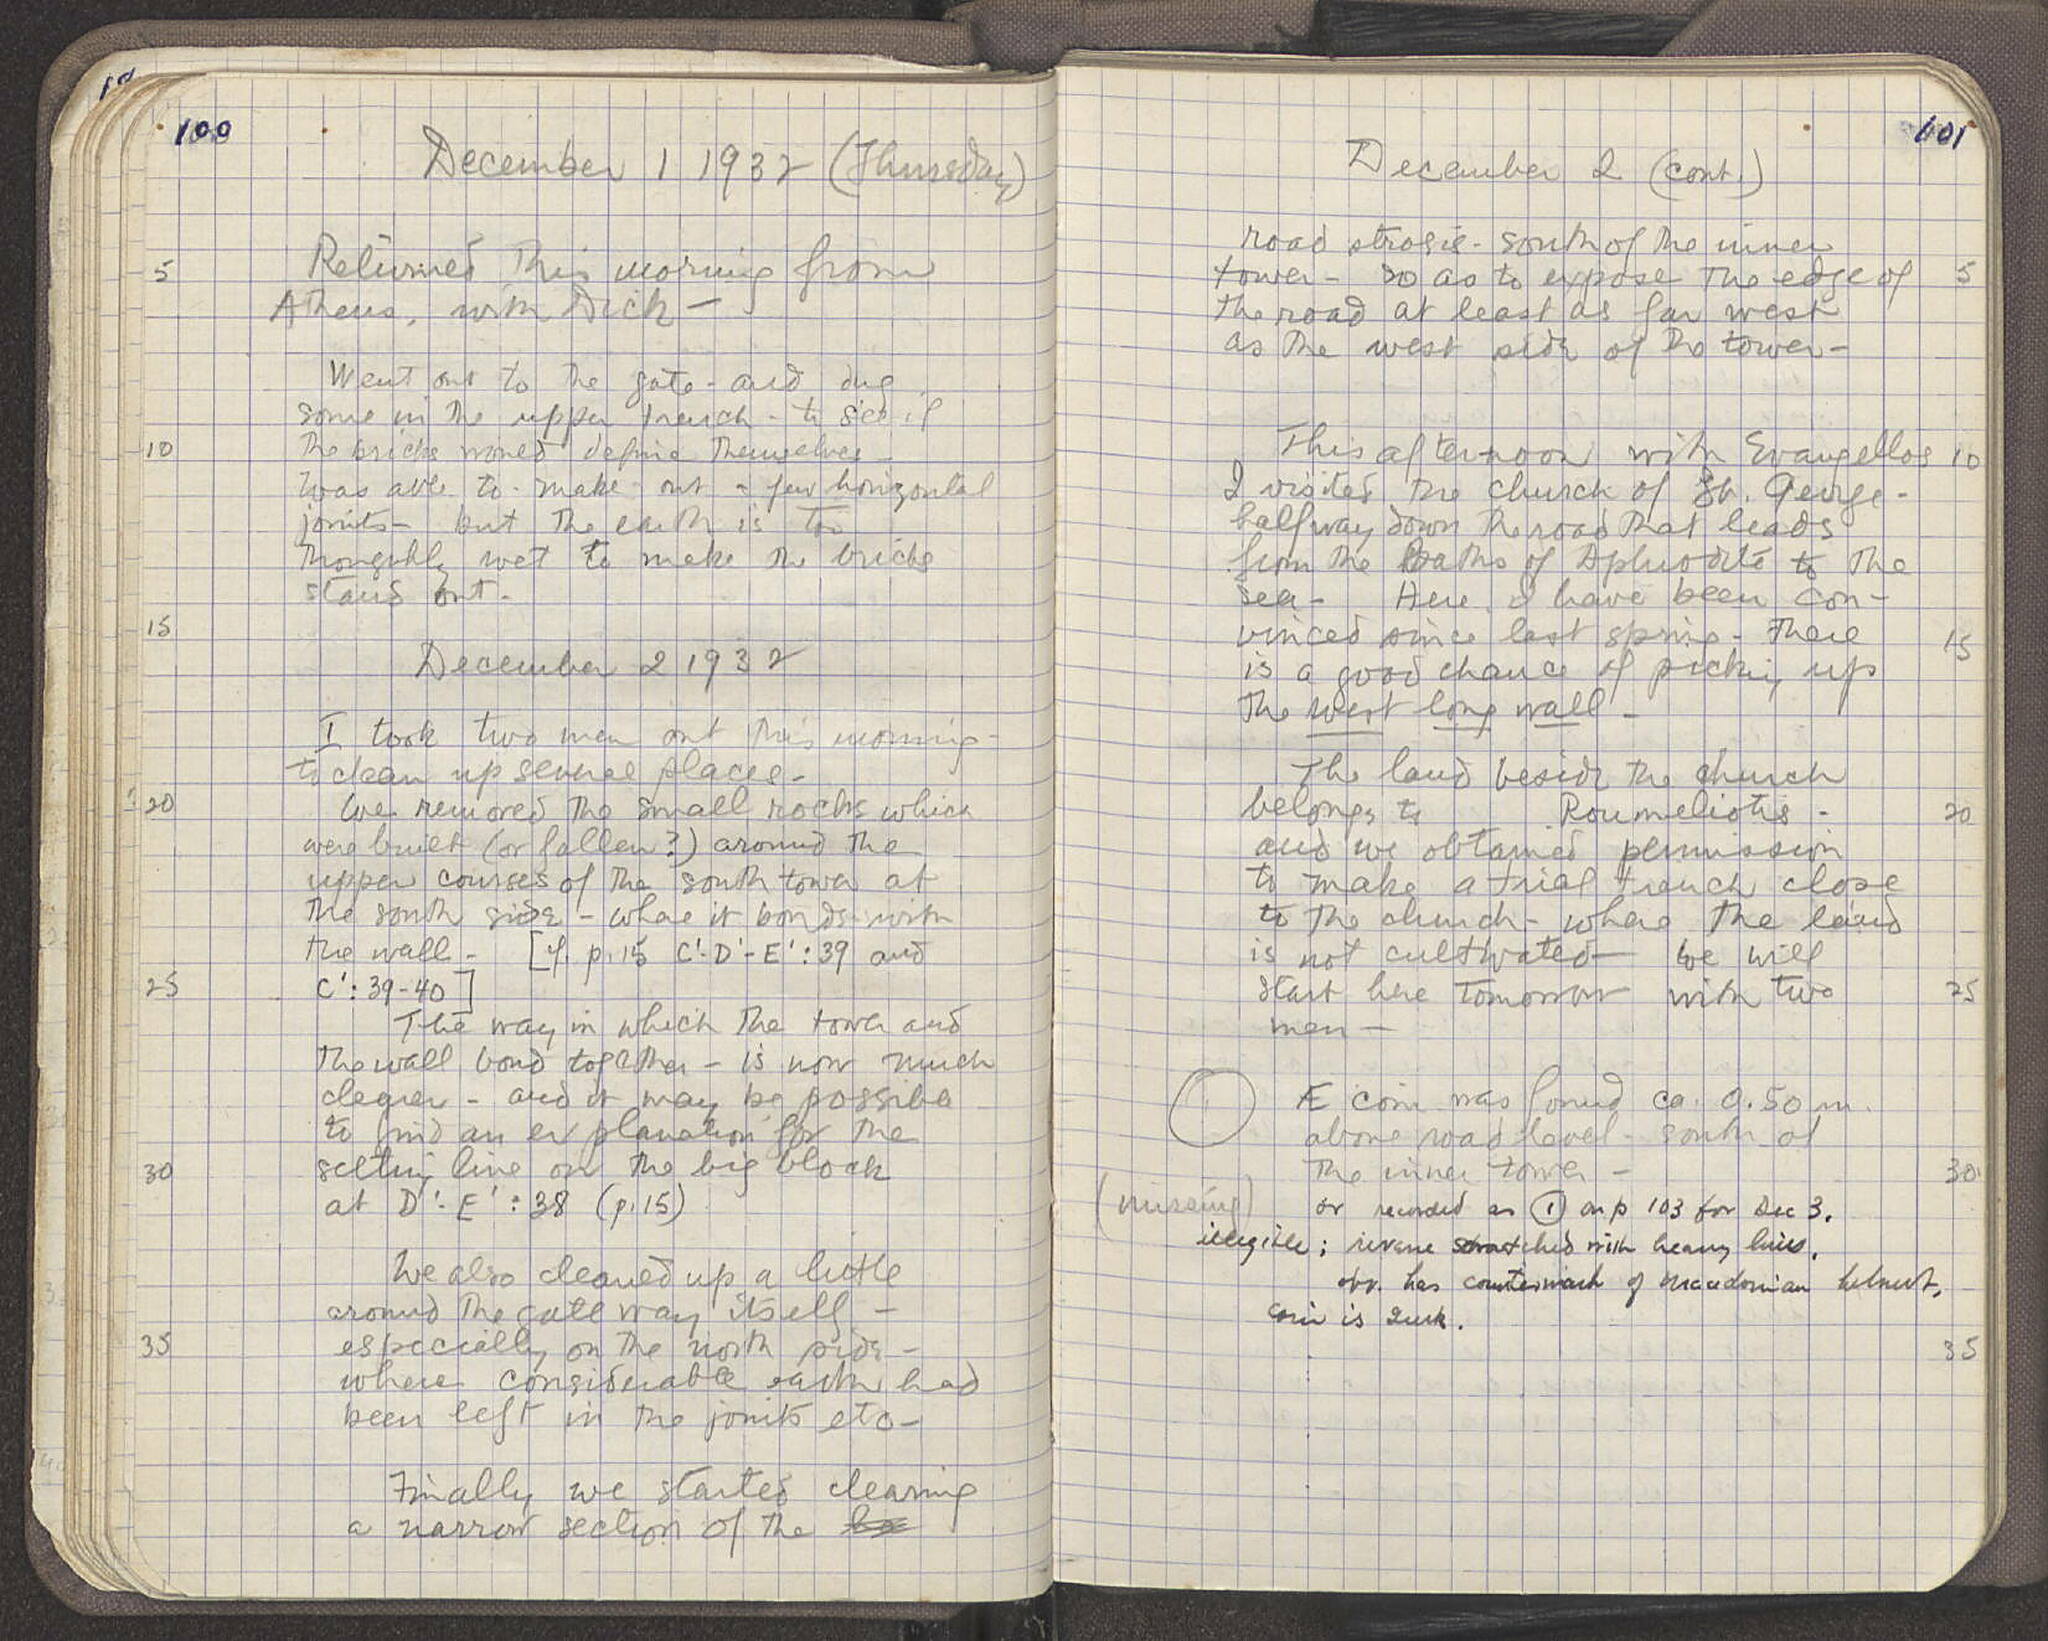 100
December 1 1932 (Thursday)
5
Returned this morning from
Athens, with Dick —
Went out to the gate - and dug
some in the upper trench - to see if
10
the bricks would define themselves -
I was able to make out a few horizontal
joints - but the earth is too
thoroughly wet to make the bricks
stand out -
15
December 2 1932
I took two men out this morning -
to clean up several places -
20
We removed the small rocks which
were built (or fallen?) around the
upper courses of the south tower at
the south side - where it bonds with
the wall - [cf. p. 15 C'-D'-E' : 39 and
25
C' : 39-40]
The way in which the tower and
the wall bond together - is now much
clearer - and it may be possible
to find an explanation for the
30
setting line on the big block
at D'-E' : 38 (p. 15)
We also cleaned up a little
around the gate way itself -
35
especially on the north side -
where considerable earth had
been left in the joints etc -
Finally we started clearing
a narrow section of the
101
December 2 (cont.)
road strosis - south of the inner
tower - so as to expose the edge of
5
the road at least as far west
as the west side of the tower -
This afternoon with Evangellos
10
I visited the church of St. George -
halfway down the road that leads
from the Baths of Aphrodite to the
sea - Here I have been con-
vinced since last spring - there
15
is a good chance of picking up
the west long wall -
The land beside the church
belongs to Roumeliotis -
20
and we obtained permission
to make a trial trench close
to the church - where the land
is not cultivated - we will
start here tomorrow with two
25
men -
Æ coin was found ca. 0.50 m.
above road level - south of
the inner tower -
30
(missing) or recorded as ① on p 103 for Dec 3.
illegible; reverse scratched with heavy lines.
obv. has countermark of Macedonian helmet.
coin is
35